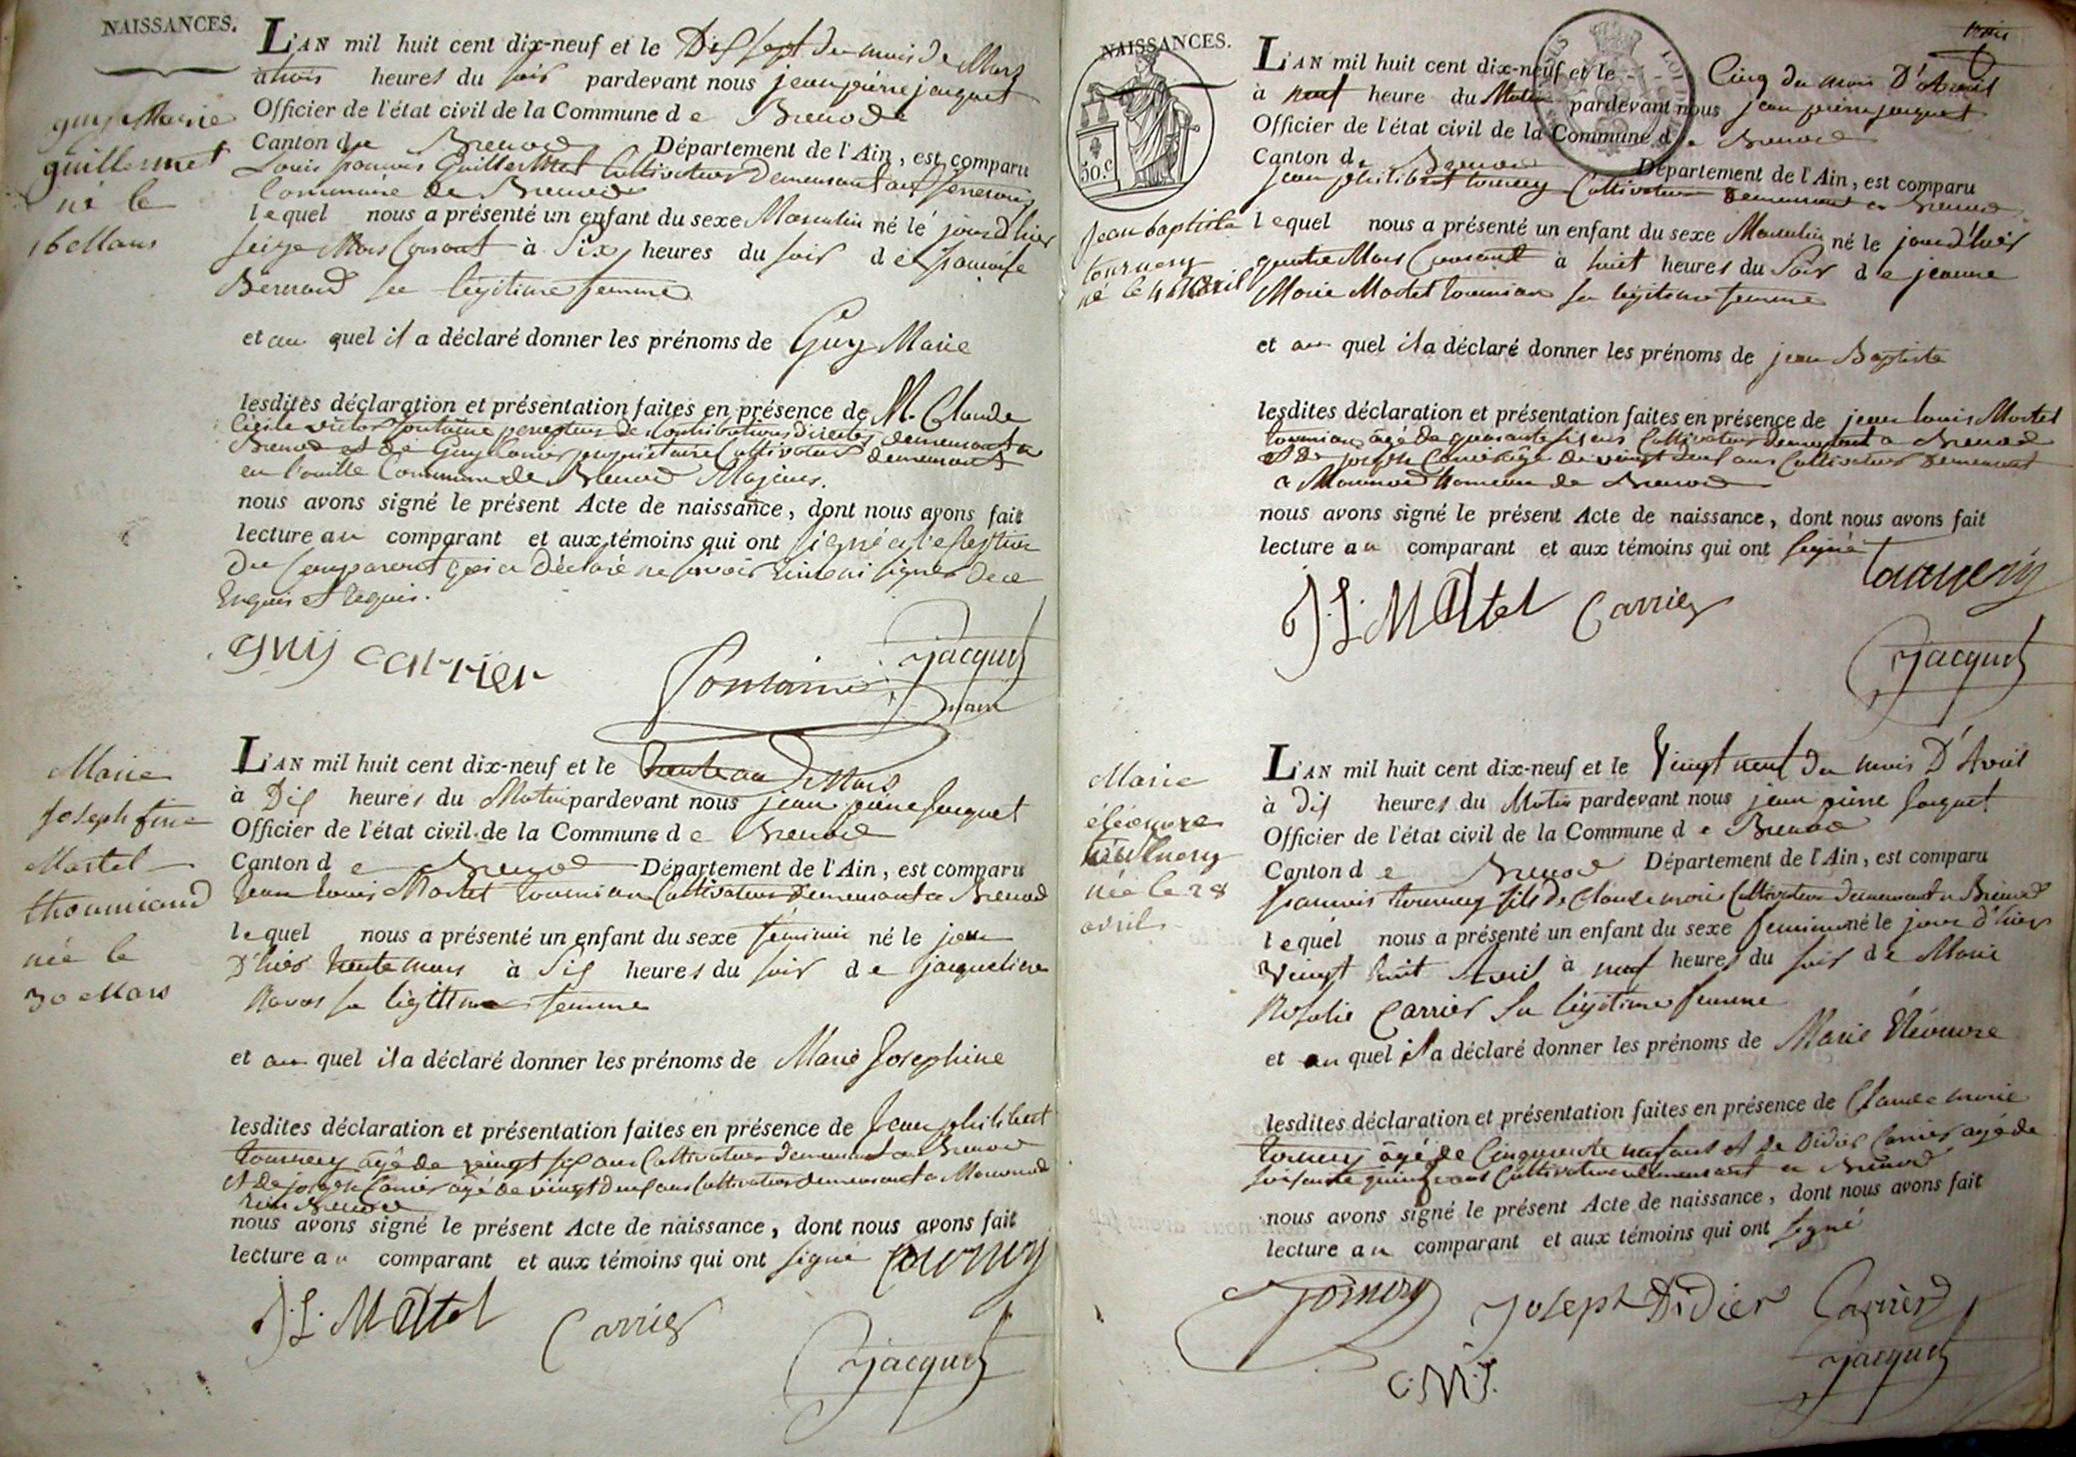 NAISSANCES.
L'AN mil huit cent dix-neuf et le Dix sept du mois de Mars
à trois heures du soir pardevant nous jean pierre jacquet
Officier de l'état civil de la Commune d e Brenod
Canton de Brenod Département de l'Ain, est comparu
Louis françois Guillermet Cultivateur Demeurant au
Commune de Brenod
lequel nous a présenté un enfant du sexe Masculin né le jour d'hier
seize Mars Courant à Six heures du soir d e françoise
Bernard sa légitime femme
et au quel il a déclaré donner les prénoms de Guy Marie
lesdites déclaration et présentation faites en présence de M. Claude
victor fontaine percepteur des contributions directes demeurant a
Brenod et de Guy Carrier propriétaire Cultivateur demeurant
en Commune de Brenod Majeurs.
nous avons signé le présent Acte de naissance, dont nous avons fait
lecture au comparant et aux témoins qui ont signé a l'exception
du Comparant qui a Déclaré ne savoir signer de ce
Enquis et Requis.
guy carrier
fontaine
Jacquet
maire
guy Marie
guillermet
né le
16 Mars
L'AN mil huit cent dix-neuf et le trente un de Mars
à Dix heures du Matin pardevant nous jean pierre Jacquet
Officier de l'état civil de la Commune d e Brenod
Canton d e Brenod Département de l'Ain, est comparu
Jean Louis Martel toumian Cultivateur Demeurant a Brenod
lequel nous a présenté un enfant du sexe féminin né le jour
D'hier trente mars à Six heures du soir d e jacqueline
Ravas sa légitime femme
et au quel il a déclaré donner les prénoms de Marie Josephine
lesdites déclaration et présentation faites en présence de Jean philibert
tournery âgé de vingt six ans Cultivateur demeurant a Brenod
et de joseph Carrier âgé de vingt deux ans Cultivateur demeurant a
Brenod
nous avons signé le présent Acte de naissance, dont nous avons fait
lecture au comparant et aux témoins qui ont signé tournery
J. L. Martel
Carrier
Jacquet
Marie
Josephine
Martel
thoumiand
née le
30 Mars
trois
NAISSANCES.
50.c
L'AN mil huit cent dix-neuf et le Cinq du mois D'Avril
à neuf heure du Matin pardevant nous jean pierre jacquet
Officier de l'état civil de la Commune d e Brenod
Canton de Brenod Département de l'Ain, est comparu
Jean philibert tournery Cultivateur Demeurant a Brenod
lequel nous a présenté un enfant du sexe Masculin né le jour d'hier
quatre Mars Courant à huit heures du Soir d e jeanne
Marie Martel toumian sa légitime femme
et au quel il a déclaré donner les prénoms de jean Baptiste
lesdites déclaration et présentation faites en présence de jean louis Martel
toumian âgé de quarante six ans Cultivateur demeurant a Brenod
et De joseph Carrier âgé De vingt deux ans Cultivateur Demeurant
a de Brenod
nous avons signé le présent Acte de naissance, dont nous avons fait
lecture au comparant et aux témoins qui ont signé
tournery
J. L. Martel
Carrier
Jacquet
Jean baptiste
tournery
né le 4 Avril
L'AN mil huit cent dix-neuf et le Vingt neuf du mois D'Avril
à dix heures du Matin pardevant nous jean pierre Jacquet
Officier de l'état civil de la Commune d e Brenod
Canton d e Brenod Département de l'Ain, est comparu
françois tournery fils de Claude marie Cultivateur demeurant a Brenod
lequel nous a présenté un enfant du sexe feminin né le jour d'hier
Vingt huit Avril à neuf heures du soir d e Marie
Rosalie Carrier Sa légitime femme
et au quel il a déclaré donner les prénoms de Marie Eléonore
lesdites déclaration et présentation faites en présence de Claude marie
tournery âgé de Cinquante neuf ans et de Didier Carrier âgé de
soixante quinze ans Cultivateur demeurant a Brenod
nous avons signé le présent Acte de naissance, dont nous avons fait
lecture au comparant et aux témoins qui ont signé
Tornery
Joseph Didier Carrier
C. M. T.
Jacquet
Marie
éléonore
tournery
née le 28
avril